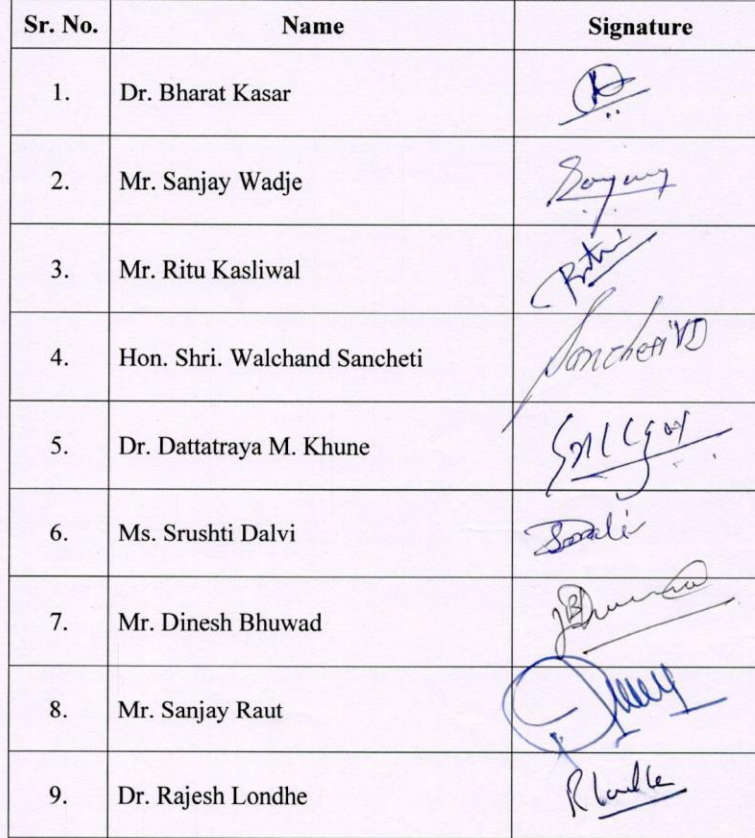 Sr. No. Name Signature
1. Dr. Bharat Kasar
2. Mr. Sanjay Wadje
3. Mr. Ritu Kasliwal
4. Hon. Shri. Walchand Sancheti Sancheti VD
5. Dr. Dattatraya M. Khune
6. Ms. Srushti Dalvi
7. Mr. Dinesh Bhuwad
8. Mr. Sanjay Raut
9. Dr. Rajesh Londhe